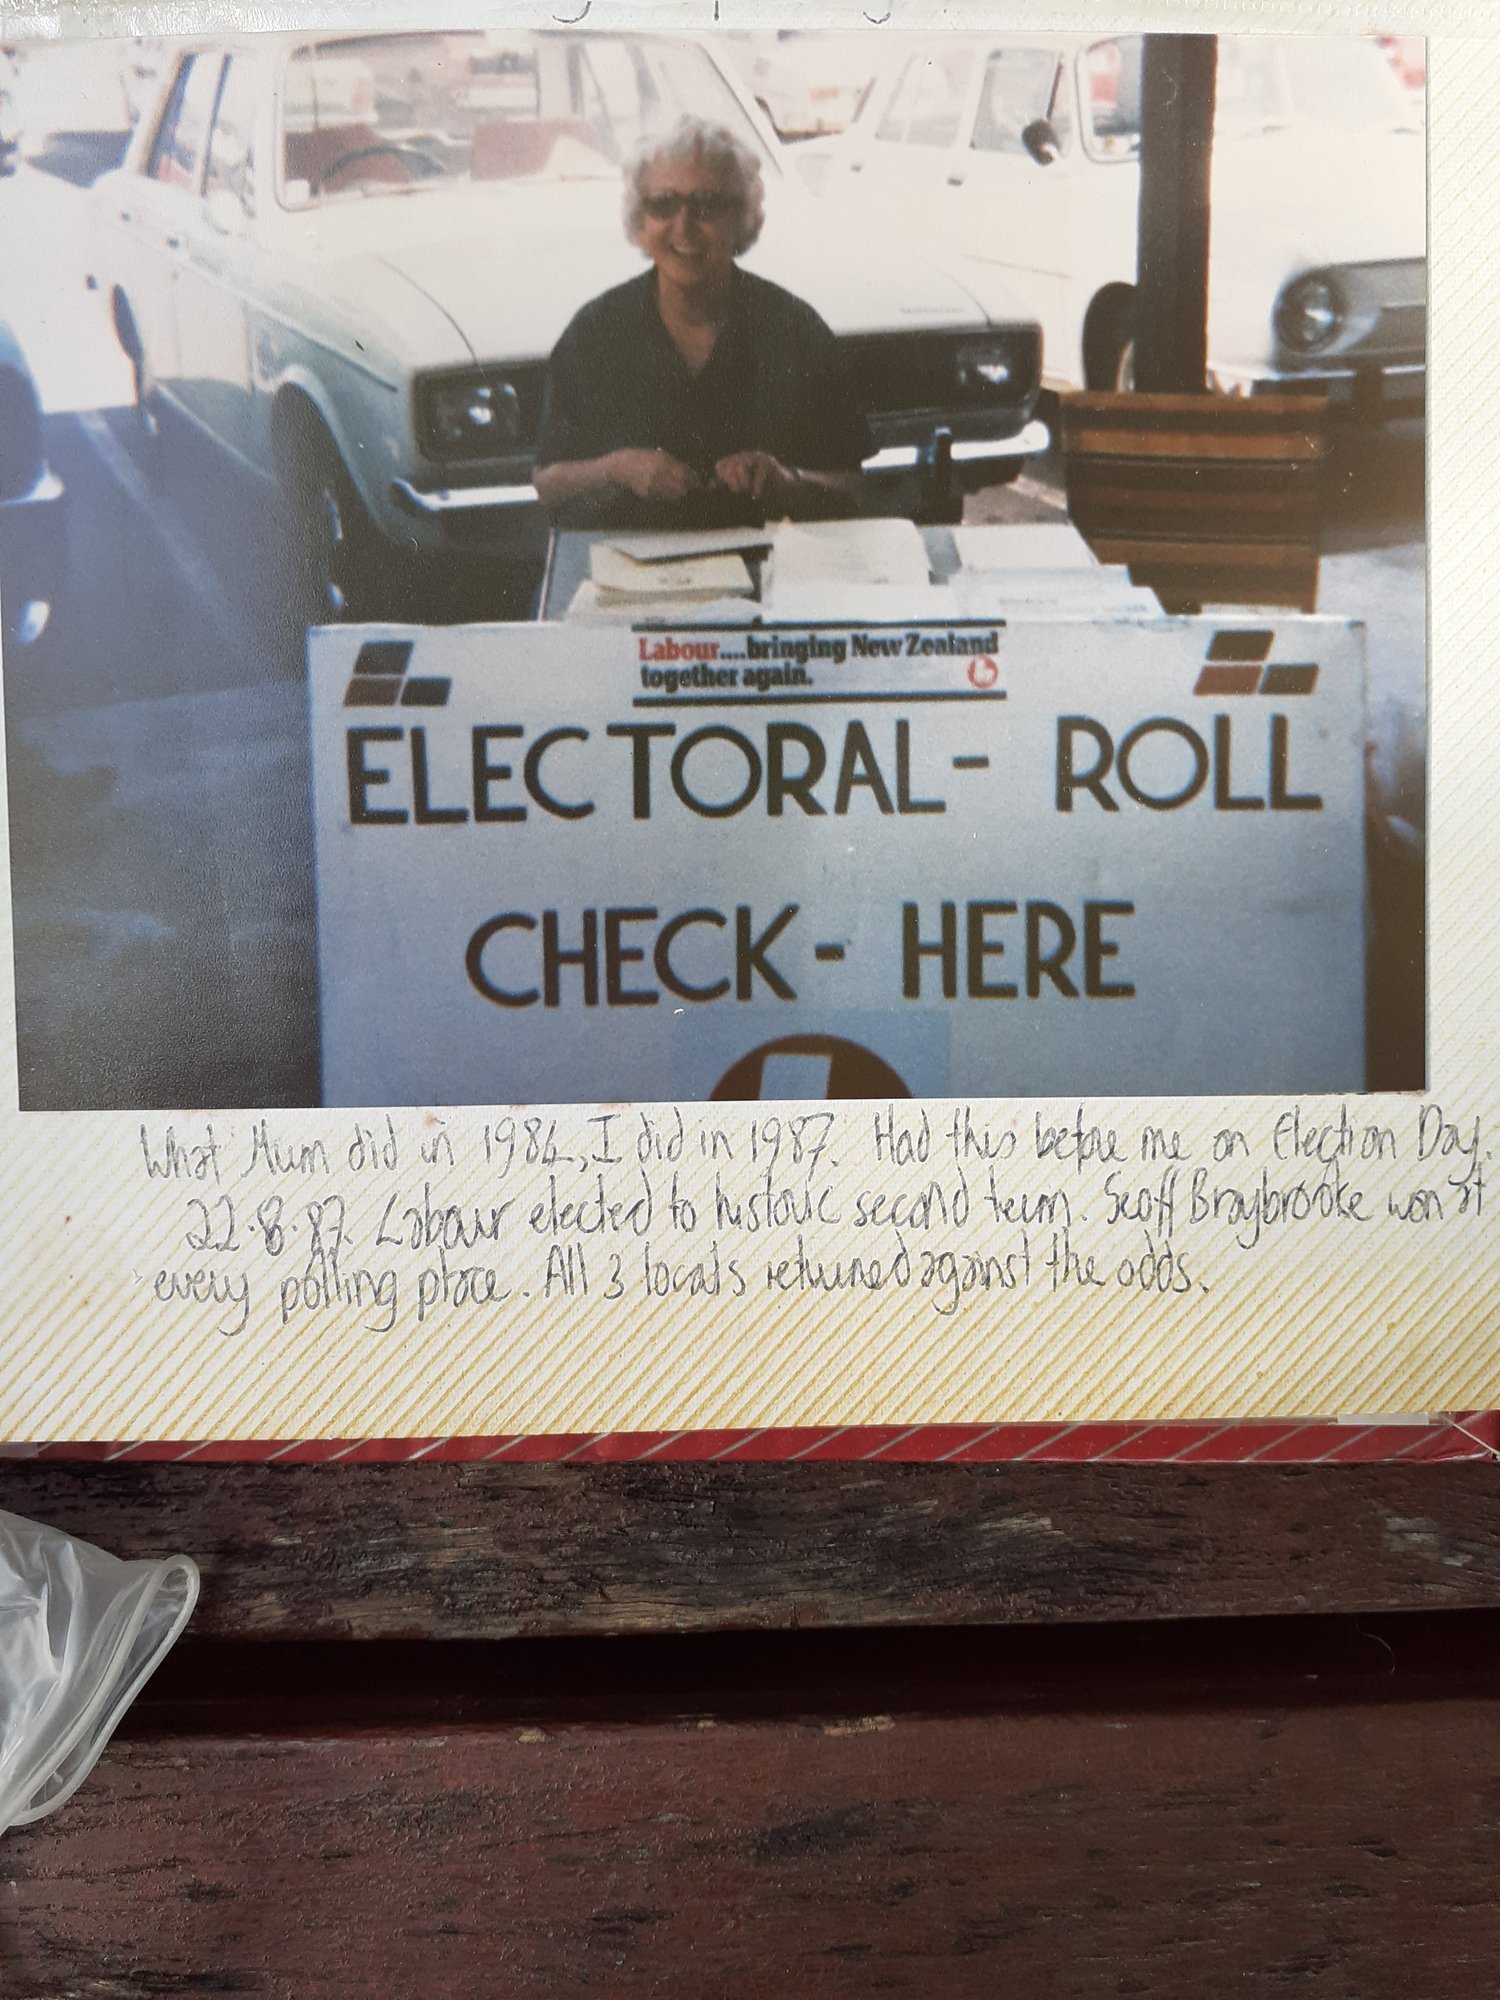 Labour....bringing New Zealand
together again.
ELECTORAL- ROLL
CHECK- HERE
What Mum did in 1984, I did in 1987. Had this before me on Election Day.
22.8.87. Labour elected to historic second term. Geoff Braybrooke won at
every polling place. All 3 locals returned against the odds.